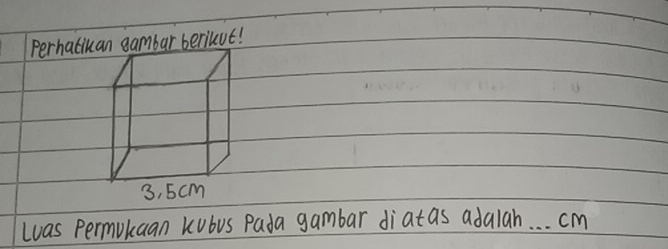 Perhatikan gambar berikut!
3,5cm
Luas Permukaan kubus Pada gambar diatas adalah... cm